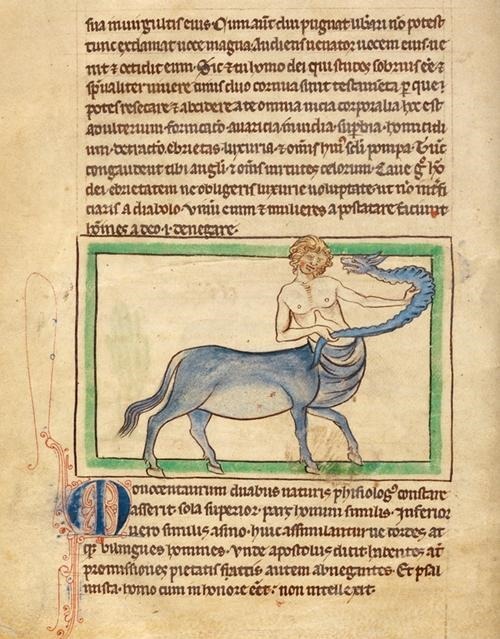 sua in uirgultis eius. Qum aut diu pugnat ululari no potest
tunc exclamat uoce magna. Audiens uenator uocem eius ue
nit & occidit eum. Sic & tu homo dei qui studes sobrius ee &
spualiter uiuere cuius duo cornua sunt testamta p que
potes resecare & abscidere a te omnia uicia corporalia hec est
adulterium fornicatio auaricia inuidia supbia homicidi
um detractio ebrietas luxuria & omis hui scli pompa. Tunc
congaudent tibi angli & oms uirtutes celorum. Caue g ho
dei ebrietatem ne obligeris luxurie uoluptate ut no intfi
ciaris a diabolo. Vinum enim & mulieres apostatare faciunt
homines a deo .i. denegare.
Monocentaurum duabus naturis phisiologs constare
asserit sola superior pars homini similis. Inferior
uero similis asino. huic assimilantur uecordes atq
q bilingues homines. Unde apostolus dicit habentes at
promissiones pietatis spassis autem abnegantes. Et psal
mista. homo cum in honore eet: non intellexit.